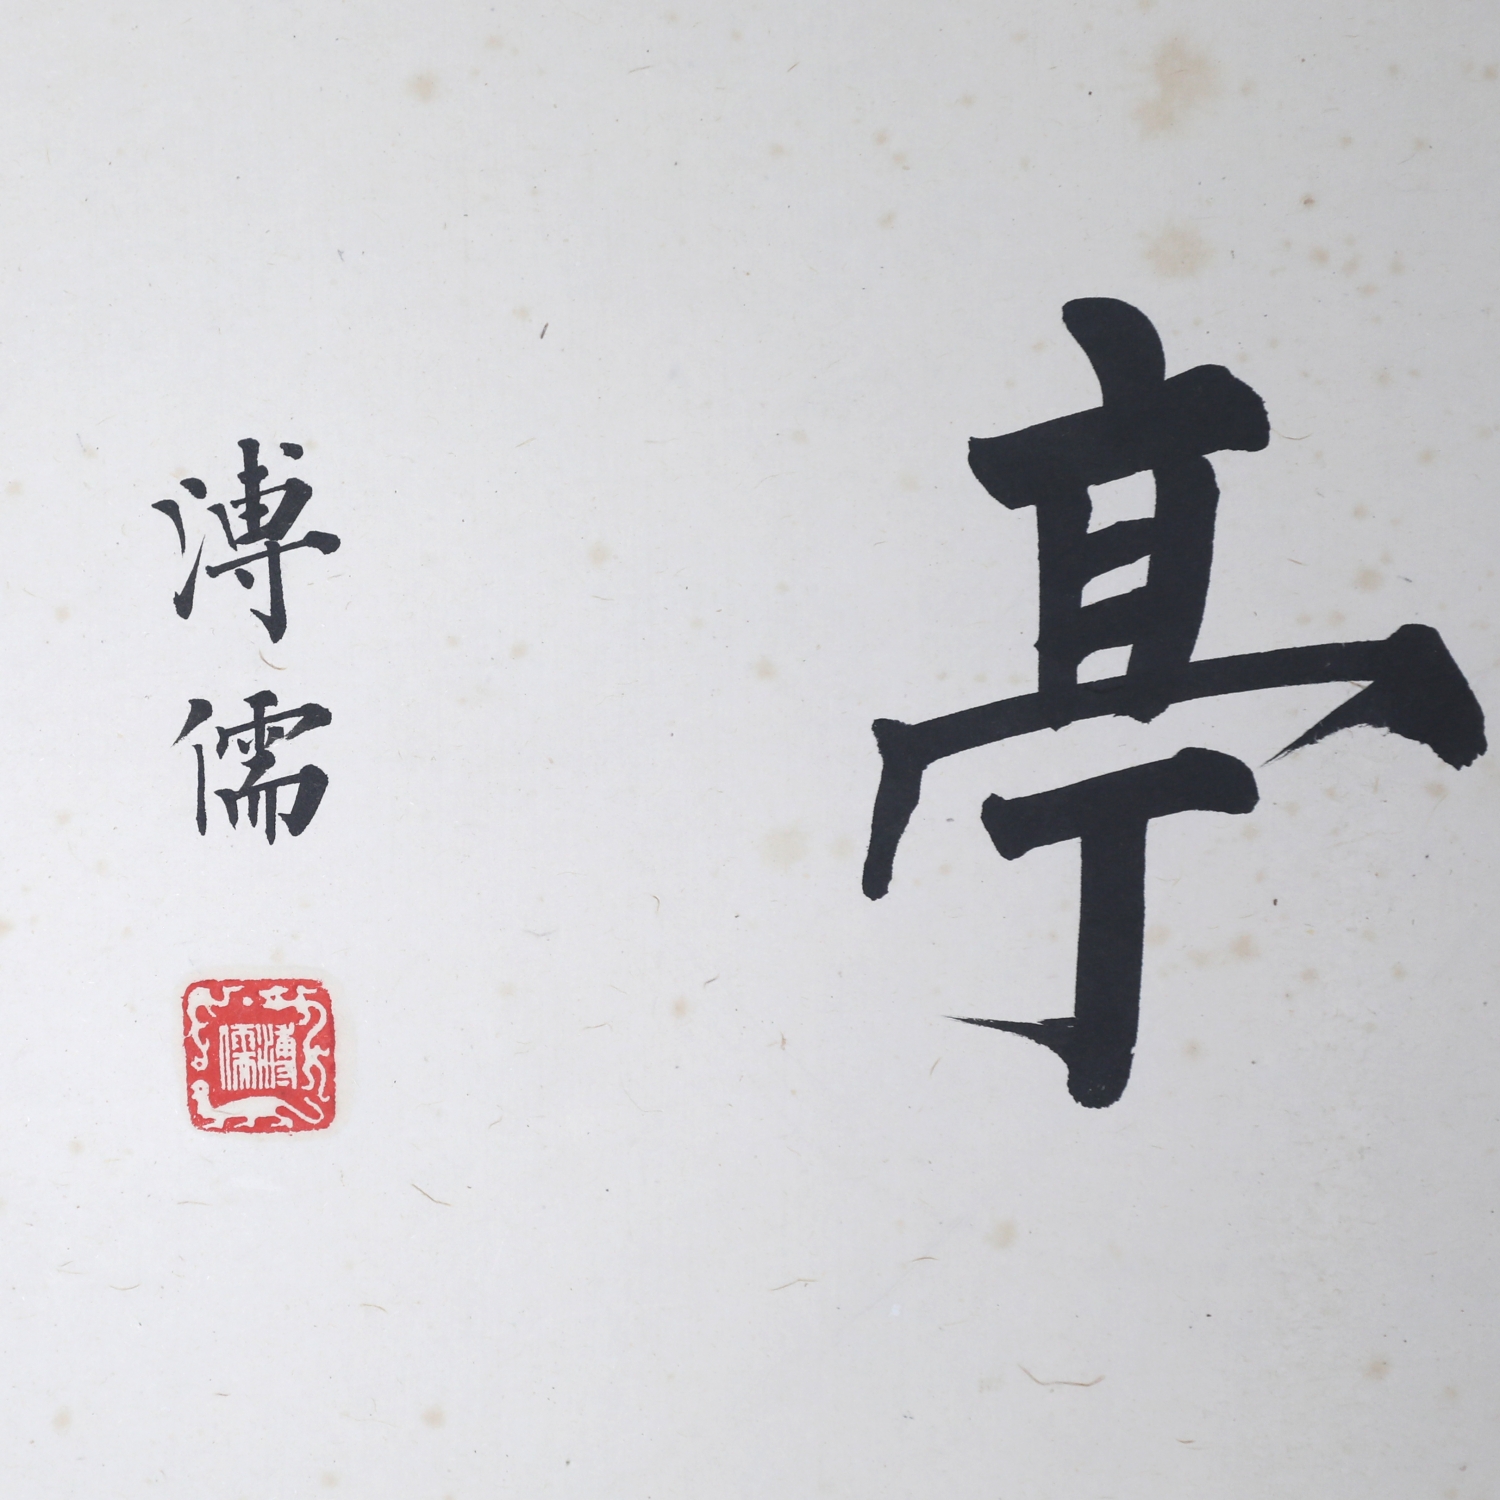 亭
溥儒
溥儒